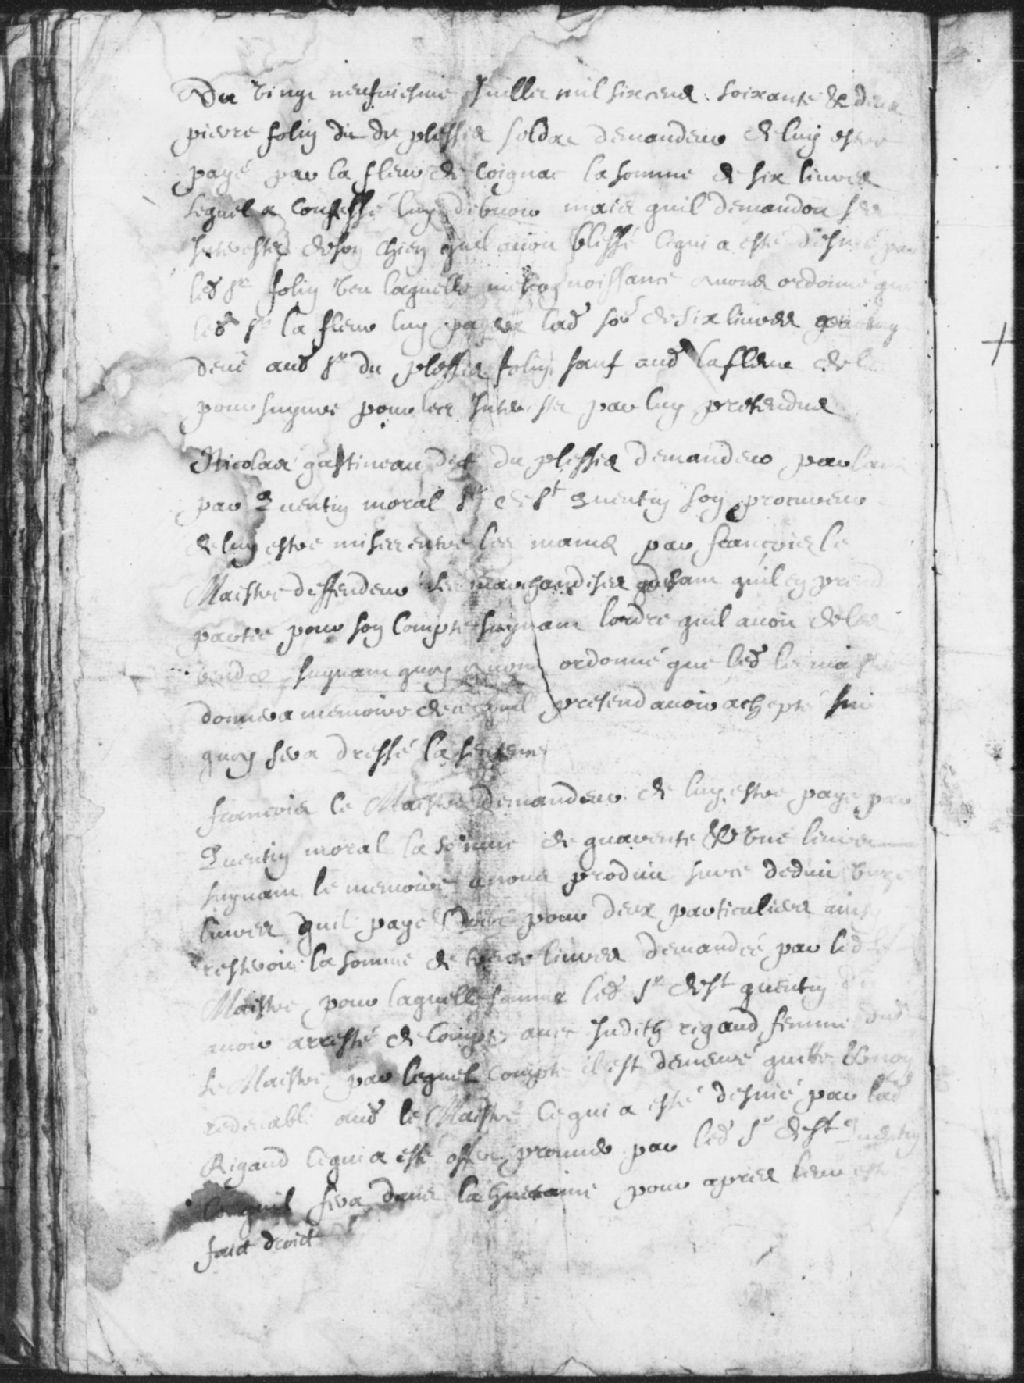 Du vingt neufviesme Juillet mil six cens soixante & deux
pierre folin dit du plessis soldat demandeur de luy estre
payé par la fleur de Coignac la somme de six livres
lequel a confessé luy debvoir mais quil demandoit ses
Interests de son chien quil avoit blessé ce qui a esté desnié par
led sr folin veu laquelle mecognoissance avons ordonné que
led sr la fleur luy payera lad som de six livres
aud sr du plessis folin sauf aud la fleur de le
poursuyvre pour les Interests par luy pretendus
Nicolas gastineau dit du plessis demandeur
par Quentin moral sr de st quentin son procureur
de luy estre mis entre les mains par francois le
Maistre deffendeur les marchandises quil en prend
partie pour son Compte suyvant lordre quil avoit de les
vendre suyvant quoy avons ordonné que led le maistre
donnera memoire de ce quil pretend avoir achepté sur
quoy sera dressé la sentence
francois le Maistre demandeur de luy estre payé par
Quentin moral la somme de quarente & une livres
suyvant le memoire a nous produit surce deduit
livres quil payé pour deux particuliers ainsy
restroit la somme de livres demandée par led
Maistre pour laquelle somme led sr de st quentin dit
avoir arresté de Compte avec Judith rigaud femme dud
le Maistre par lequel compte il est demeuré quitte & non
redevable aud le Maistre ce qui a esté desnié par lad
Rigaud ce qui a esté offert prouver par led sr de st quentin
Ce quil fera dans la huitaine pour apres leur est
fait droict